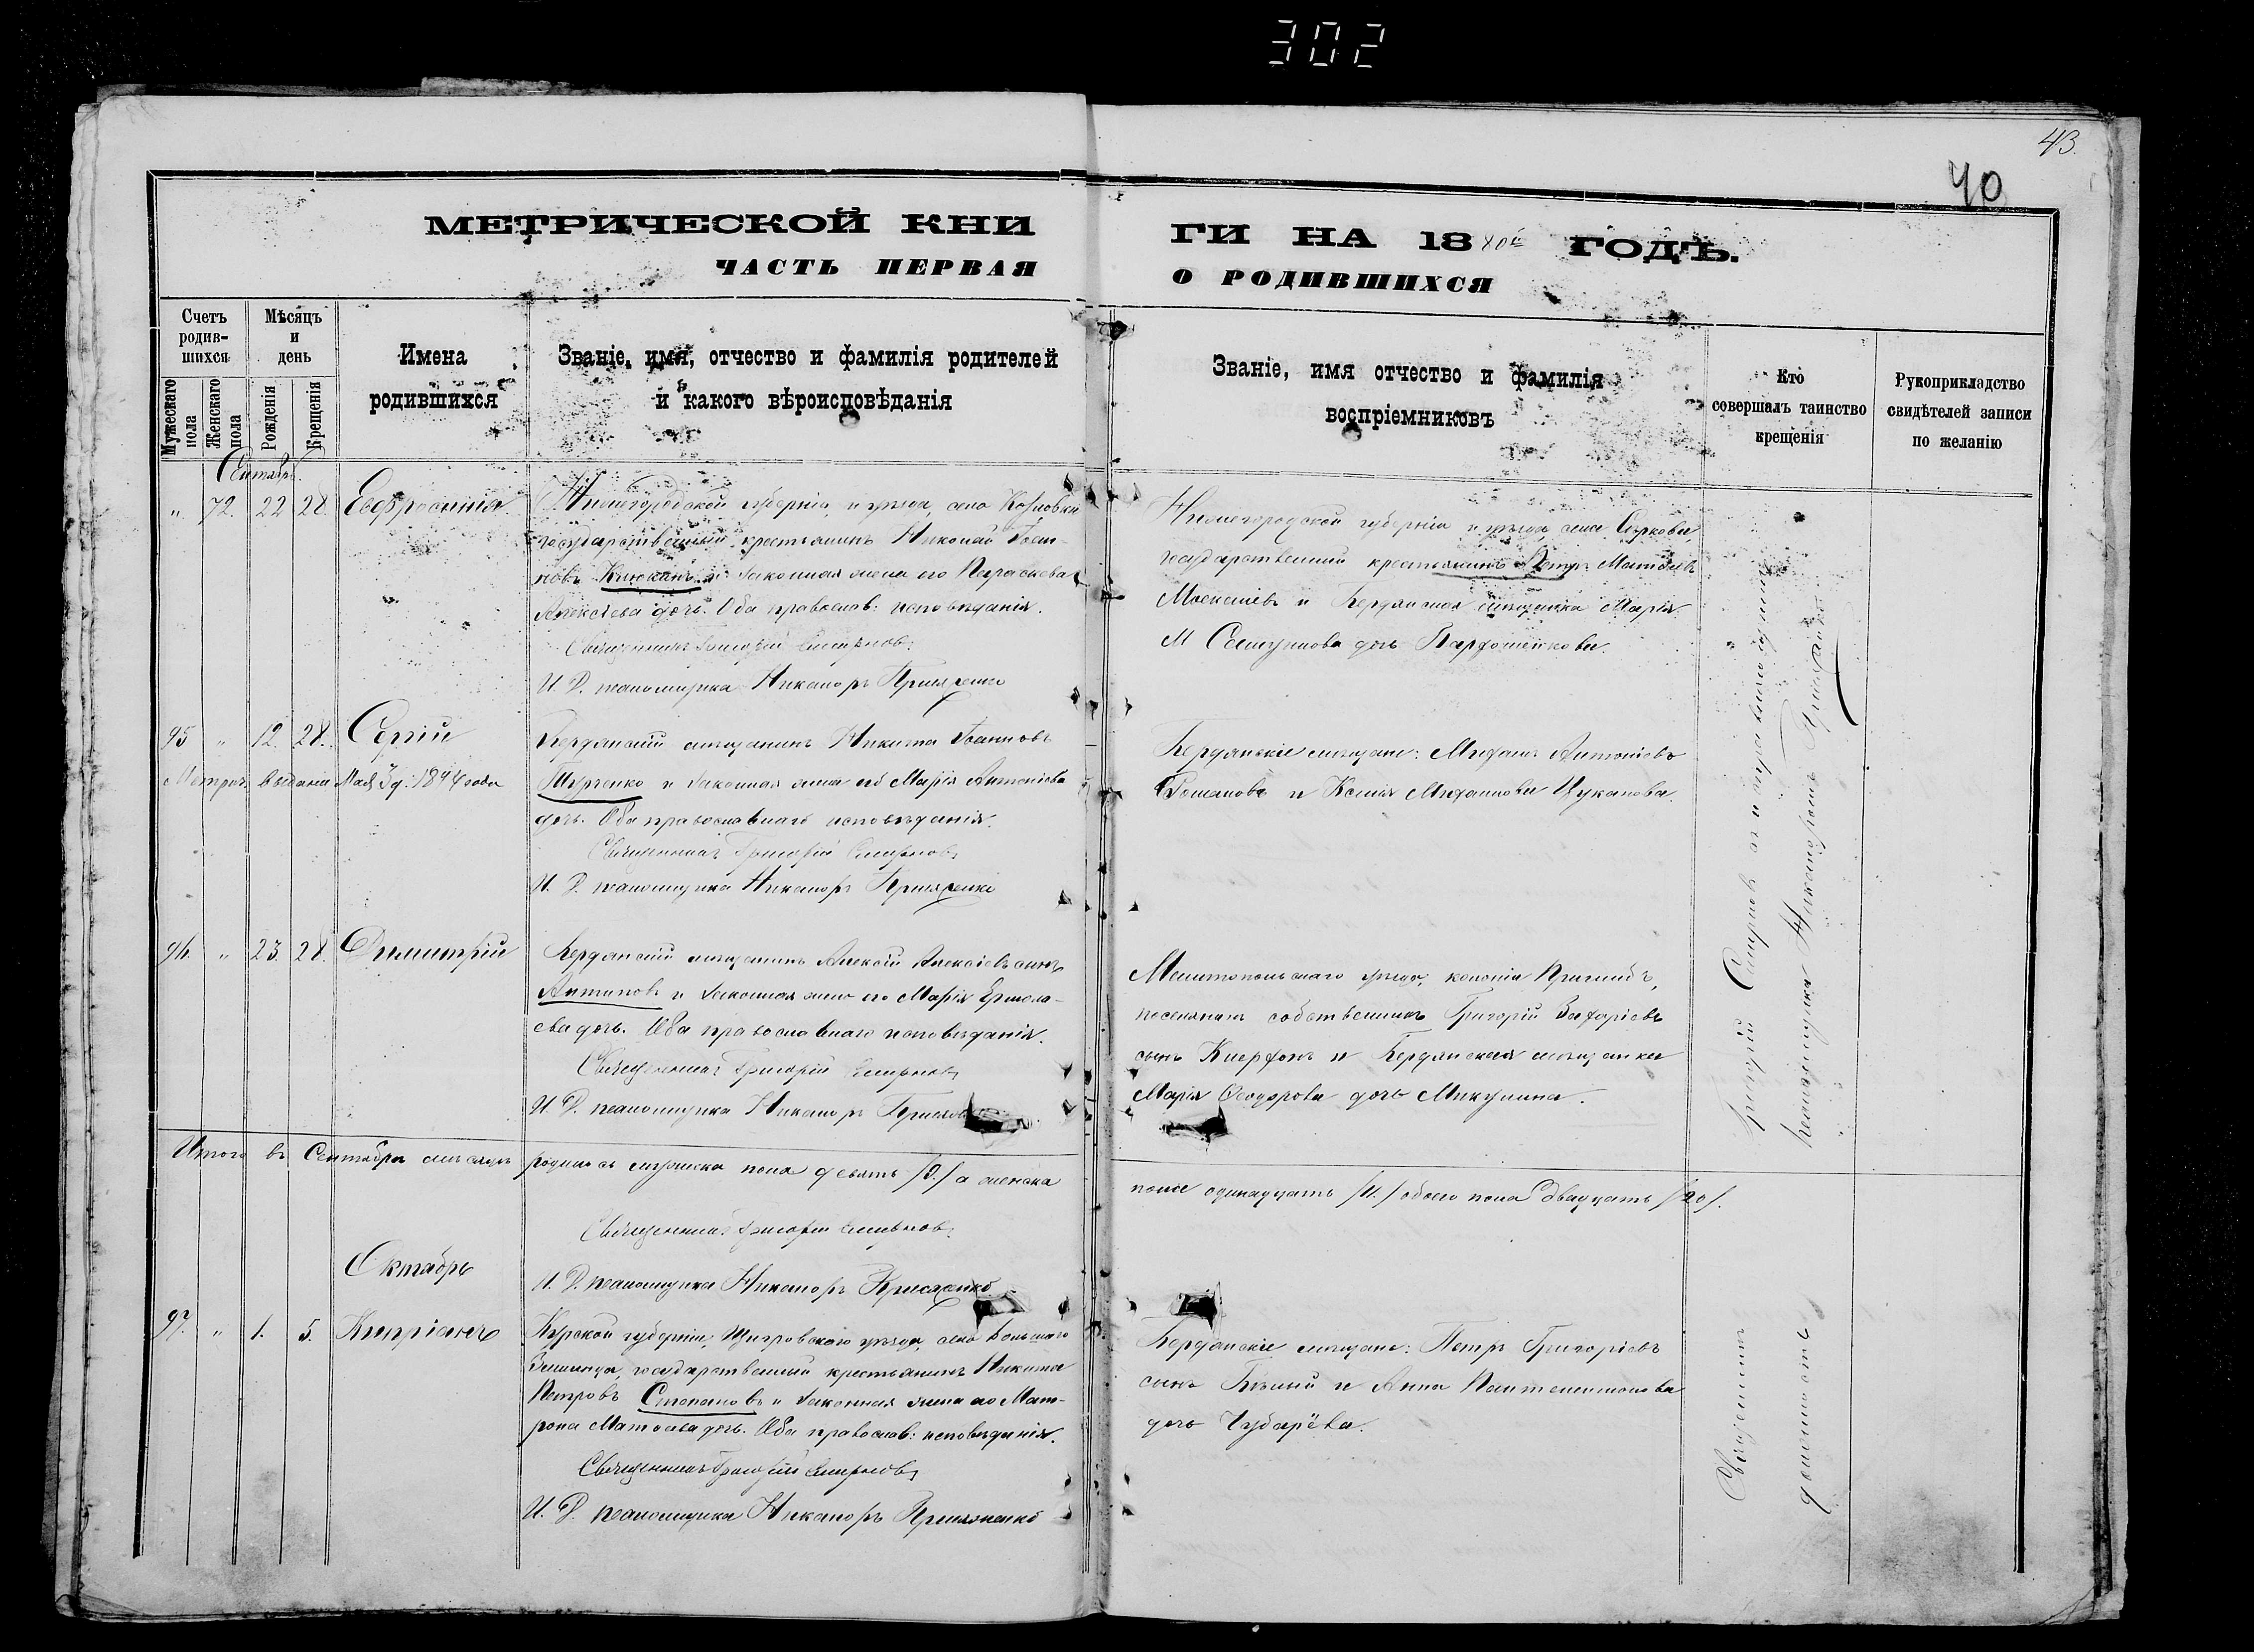 302
43.
40
МЕТРИЧЕСКОЙ КНИ
ГИ НА 1880й ГОДЪ.
ЧАСТЬ ПЕРВАЯ
О РОДИВШИХСЯ
Счетъ родив-шихся
Мужескаго пола
Женскаго пола
Мѣсяцъ и день
Рожденія
Крещенія
Имена родившихся
Званіе, имя, отчество и фамилія родителей
и какого вѣроисповѣданія
Званіе, имя отчество и фамилія
воспріемниковъ
Кто
совершалъ таинство
крещенія
Рукоприкладство
свидѣтелей записи
по желанію
Сентябрь.
" 72. 22 28. Евфросинія.
Нижегородской губерніи, и уѣзда, села
государственный крестьянинъ Николай
и законная жена его Параскева
Алексѣева дочь. Оба православ: исповѣданія.
Священникъ Григорій Смирновъ
И. Д. псаломщика Никаноръ
Нижегородской губерніи и уѣзда, села
государственный крестьянинъ Петръ Матвѣевъ
и Бердянская мѣщанка Марія
дочь
95 " 12. 28. Сергій
Метрич. выдана Мая 3 д: 1894 года
Бердянскій мѣщанинъ Никита Іоанновъ
Турченко и законная жена его Марія Антоніева
дочь. Оба православнаго исповѣданія.
Священникъ Григорій Смирновъ
И. Д. псаломщика Никаноръ
Бердянскіе мѣщане: Михаилъ Антоніевъ
и Ксенія Михаилова Цуканова.
96. " 23. 28. Димитрій
Бердянскій мѣщанинъ Алексій Алексіевъ сынъ
Антиповъ и законная жена его Марія Ермола-
ева дочь. Оба православнаго исповѣданія.
Священникъ Григорій Смирновъ
И. Д. псаломщика Никаноръ
Мелитопольскаго уѣзда, колоніи Пришибъ,
поселянинъ собственникъ Григорій
сынъ и Бердянская мѣщанка
Марія Ѳеодорова дочь Микулина.
Итого въ Сентябрѣ мѣсяцѣ родилось мужеска пола девять /9./ а женска
пола одинадцать /11./ обоего пола двадцать /20/.
Священникъ Григорій Смирновъ
Октябрь
И. Д. псаломщика Никаноръ
97. " 1. 5. Кипріанъ
Курской губерніи, Щигровскаго уѣзда, села
государственный крестьянинъ Никита
Петровъ Степановъ и законная жена его Мат-
рона Матвѣева дочь. Оба православ: исповѣданія.
Священникъ Григорій Смирновъ
И. Д. псаломщика Никаноръ
Бердянскіе мѣщане: Петръ Григоріевъ
сынъ и Анна Пантелеимонова
дочь Чубарёва.
Священникъ Григорій Смирновъ
псаломщика Никаноромъ